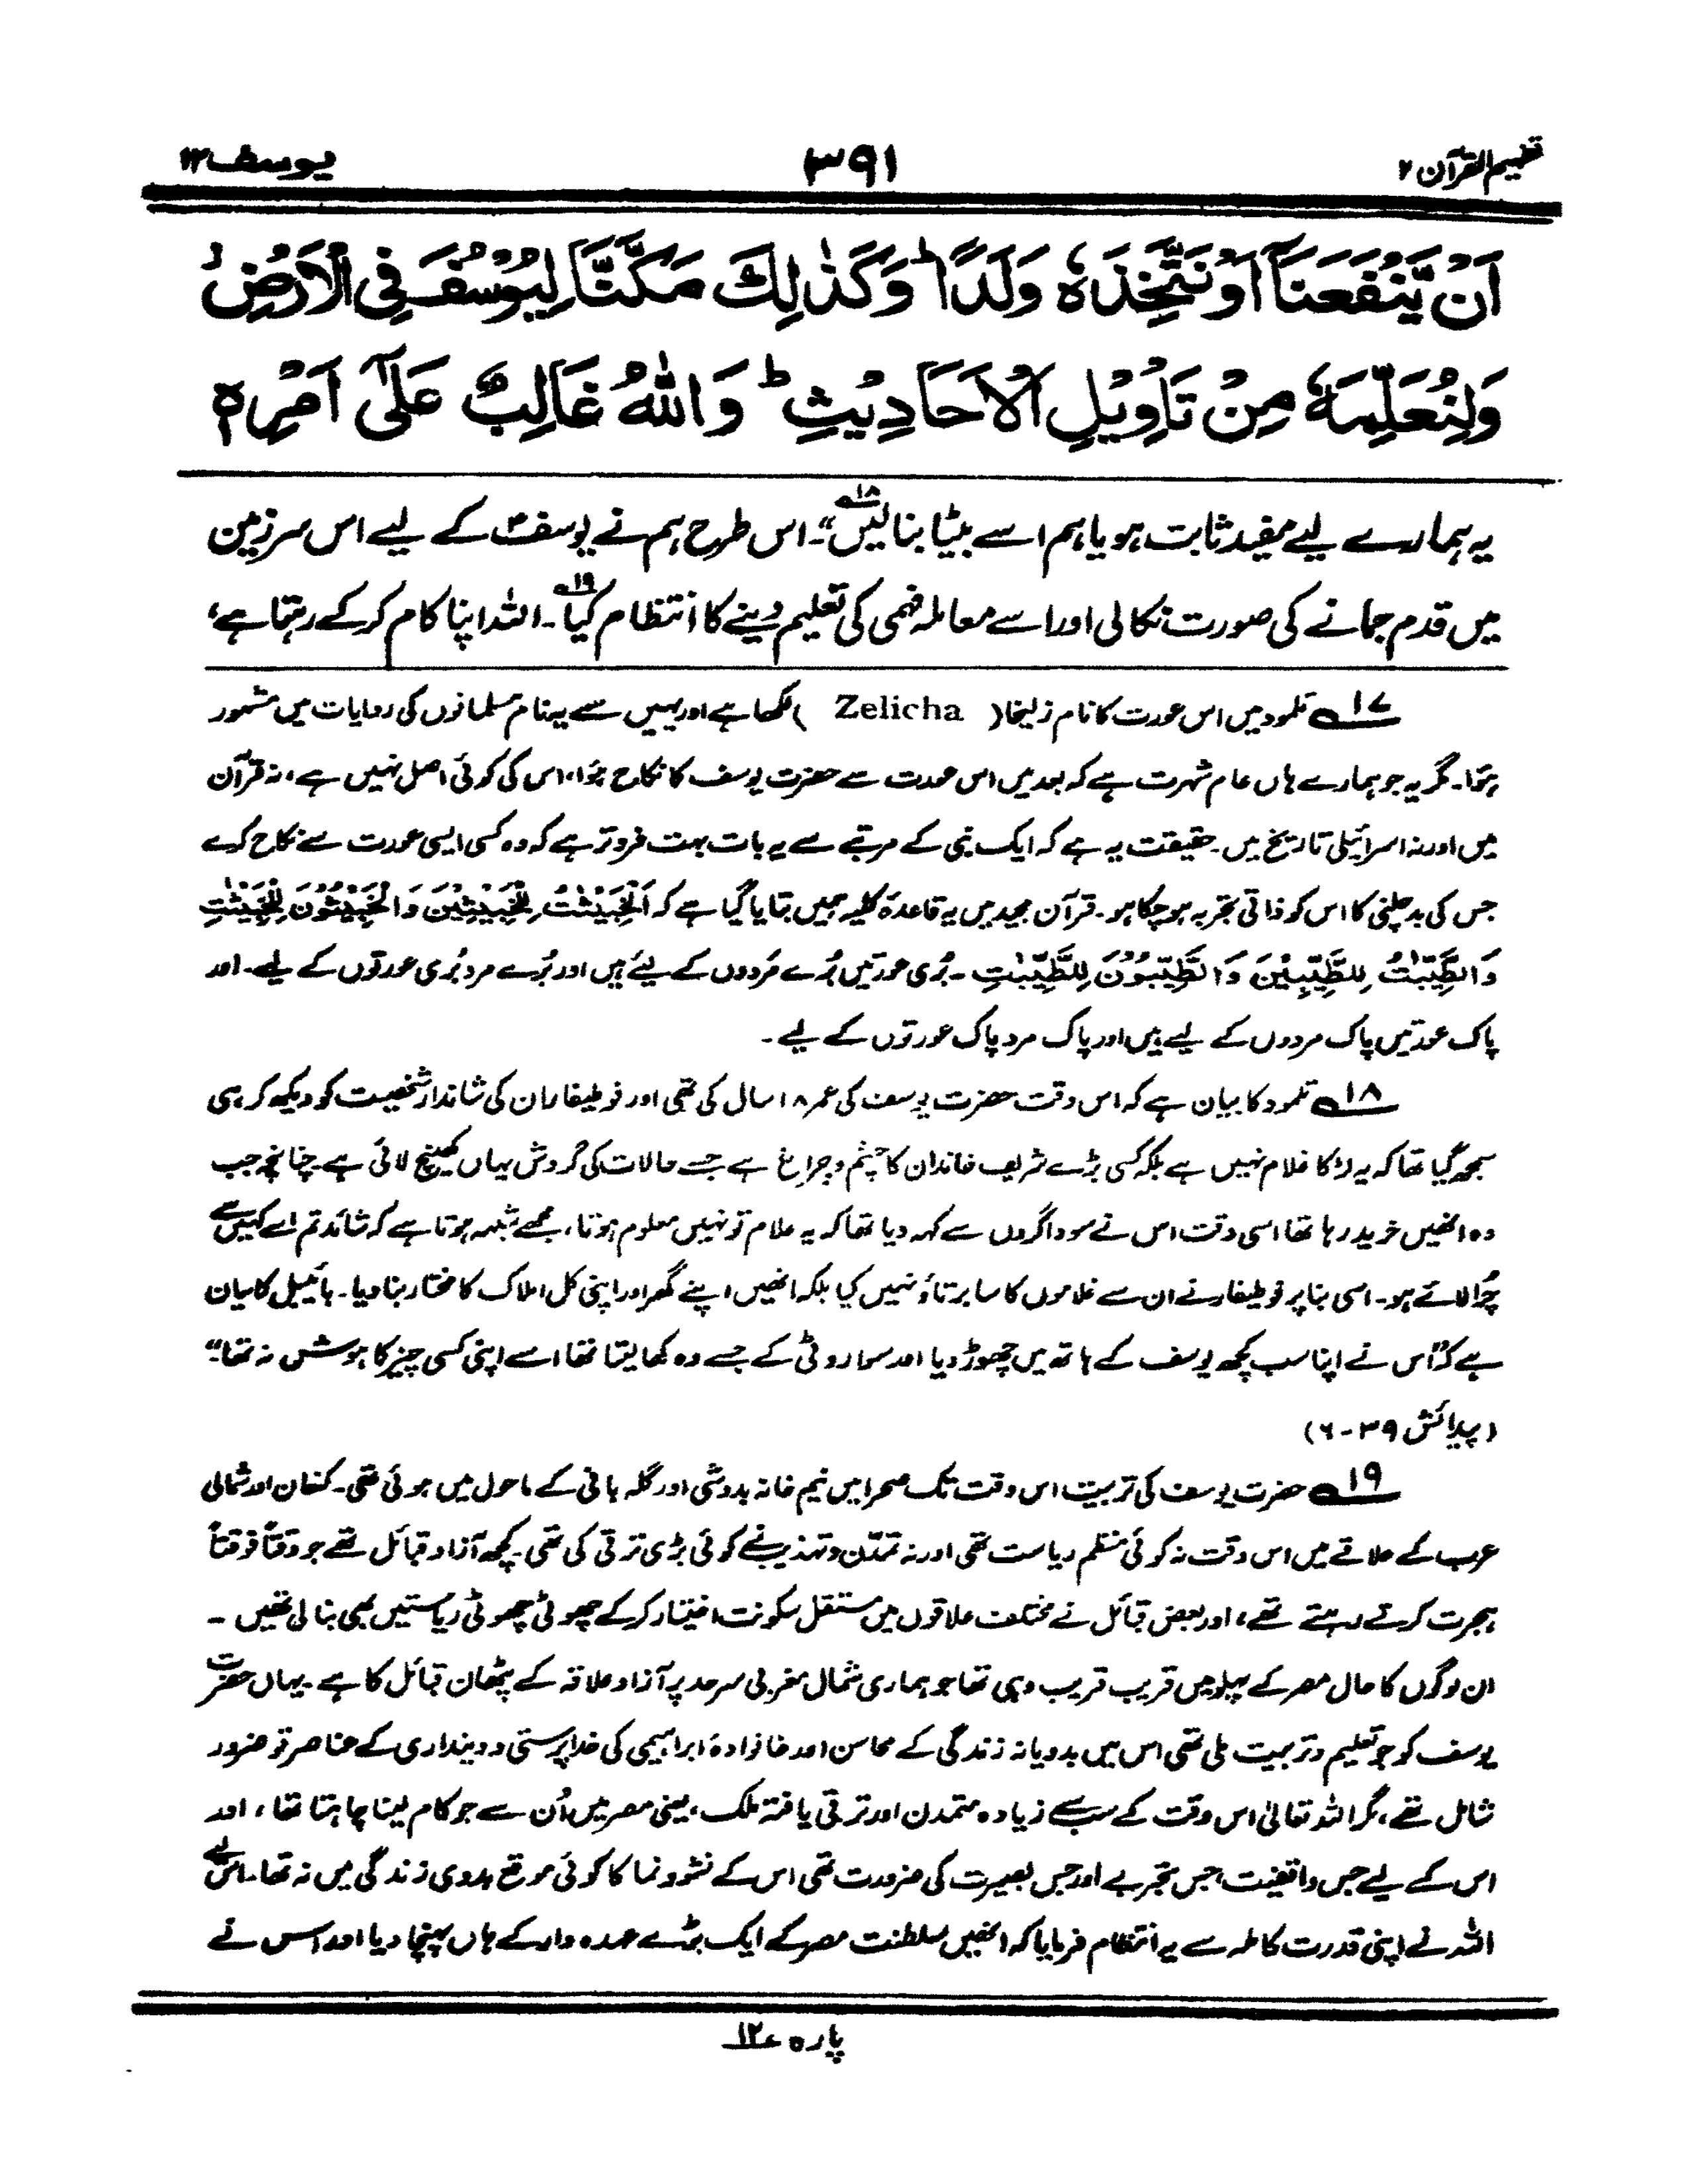 تفہیم القرآن ۲
۳۹۱
یوسف ۱۲
اَنْ يَّنْفَعَنَآ اَوْ نَتَّخِذَهٗ وَلَدًا ؕ وَكَذٰلِكَ مَكَّنَّا لِيُوْسُفَ فِي الْاَرْضِ ؗ
وَلِنُعَلِّمَهٗ مِنْ تَاْوِيْلِ الْاَحَادِيْثِ ؕ وَاللّٰهُ غَالِبٌ عَلٰٓى اَمْرِهٖ
یہ ہمارے لیے مفید ثابت ہو یا ہم اسے بیٹا بنا لیں۱۸“۔ اس طرح ہم نے یوسفؑ کے لیے اس سرزمین
میں قدم جمانے کی صورت نکالی اور اسے معاملہ فہمی کی تعلیم دینے کا انتظام کیا۱۹۔ اللہ اپنا کام کر کے رہتا ہے،
۱۷ تلمود میں اس عورت کا نام زلیخا ( Zelicha ) لکھا ہے اور یہیں سے یہ نام مسلمانوں کی روایات میں مشہور
ہوا۔ مگر یہ جو ہمارے ہاں عام شہرت ہے کہ بعد میں اس عورت سے حضرت یوسف کا نکاح ہوا، اس کی کوئی اصل نہیں ہے، نہ قرآن
میں اور نہ اسرائیلی تاریخ میں۔ حقیقت یہ ہے کہ ایک نبی کے مرتبے سے یہ بات بہت فروتر ہے کہ وہ کسی ایسی عورت سے نکاح کرے
جس کی بدچلنی کا اس کو ذاتی تجربہ ہو چکا ہو۔ قرآن مجید میں یہ قاعدۂ کلیہ ہمیں بتایا گیا ہے کہ اَلْخَبِيْثٰتُ لِلْخَبِيْثِيْنَ وَالْخَبِيْثُوْنَ لِلْخَبِيْثٰتِ
وَالطَّيِّبٰتُ لِلطَّيِّبِيْنَ وَالطَّيِّبُوْنَ لِلطَّيِّبٰتِ ۔ بُری عورتیں بُرے مَردوں کے لیے ہیں اور بُرے مرد بُری عورتوں کے لیے۔ اور
پاک عورتیں پاک مردوں کے لیے ہیں اور پاک مرد پاک عورتوں کے لیے ۔
۱۸ تلمود کا بیان ہے کہ اس وقت حضرت یوسف کی عمر ۱۸ سال کی تھی اور فوطیفار ان کی شاندار شخصیت کو دیکھ کر ہی
سمجھ گیا تھا کہ یہ لڑکا غلام نہیں ہے بلکہ کسی بڑے شریف خاندان کا چشم و چراغ ہے جسے حالات کی گردش یہاں کھینچ لائی ہے۔ چنانچہ جب
وہ انھیں خرید رہا تھا اسی وقت اس نے سوداگروں سے کہہ دیا تھا کہ یہ غلام تو نہیں معلوم ہوتا، مجھے شبہہ ہوتا ہے کہ شائد تم اسے کہیں سے
چُرا لائے ہو۔ اسی بنا پر فوطیفار نے ان سے غلاموں کا سا برتاؤ نہیں کیا بلکہ انھیں اپنے گھر اور اپنی کل املاک کا مختار بنا دیا۔ بائیبل کا بیان
ہے کہ ”اُس نے اپنا سب کچھ یوسف کے ہاتھ میں چھوڑ دیا اور سوا روٹی کے جسے وہ کھا لیتا تھا اسے اپنی کسی چیز کا ہوش نہ تھا“
(پیدائش ۳۹-۶)
۱۹ حضرت یوسف کی تربیت اس وقت تک صحرا میں نیم خانہ بدوشی اور گلہ بانی کے ماحول میں ہوئی تھی۔ کنعان اور شمالی
عرب کے علاقے میں اس وقت نہ کوئی منظم ریاست تھی اور نہ تمدّن و تہذیب نے کوئی بڑی ترقی کی تھی۔ کچھ آزاد قبائل تھے جو وقتاً فوقتاً
ہجرت کرتے رہتے تھے، اور بعض قبائل نے مختلف علاقوں میں مستقل سکونت اختیار کر کے چھوٹی چھوٹی ریاستیں بھی بنا لی تھیں ۔
ان لوگوں کا حال مصر کے پہلو میں قریب قریب وہی تھا جو ہماری شمال مغربی سرحد پر آزاد علاقہ کے پٹھان قبائل کا ہے۔ یہاں حضرت
یوسف کو جو تعلیم و تربیت ملی تھی اس میں بدویانہ زندگی کے محاسن اور خانوادۂ ابراہیمی کی خدا پرستی و دینداری کے عناصر تو ضرور
شامل تھے، مگر اللہ تعالیٰ اس وقت کے سب سے زیادہ متمدن اور ترقی یافتہ ملک، یعنی مصر میں اُن سے جو کام لینا چاہتا تھا، اور
اس کے لیے جس واقفیت، جس تجربے اور جس بصیرت کی ضرورت تھی اس کے نشوونما کا کوئی موقع بدوی زندگی میں نہ تھا۔ اس لیے
اللہ نے اپنی قدرت کاملہ سے یہ انتظام فرمایا کہ انھیں سلطنت مصر کے ایک بڑے عہدہ دار کے ہاں پہنچا دیا اور اس نے
پارہ ۱۲